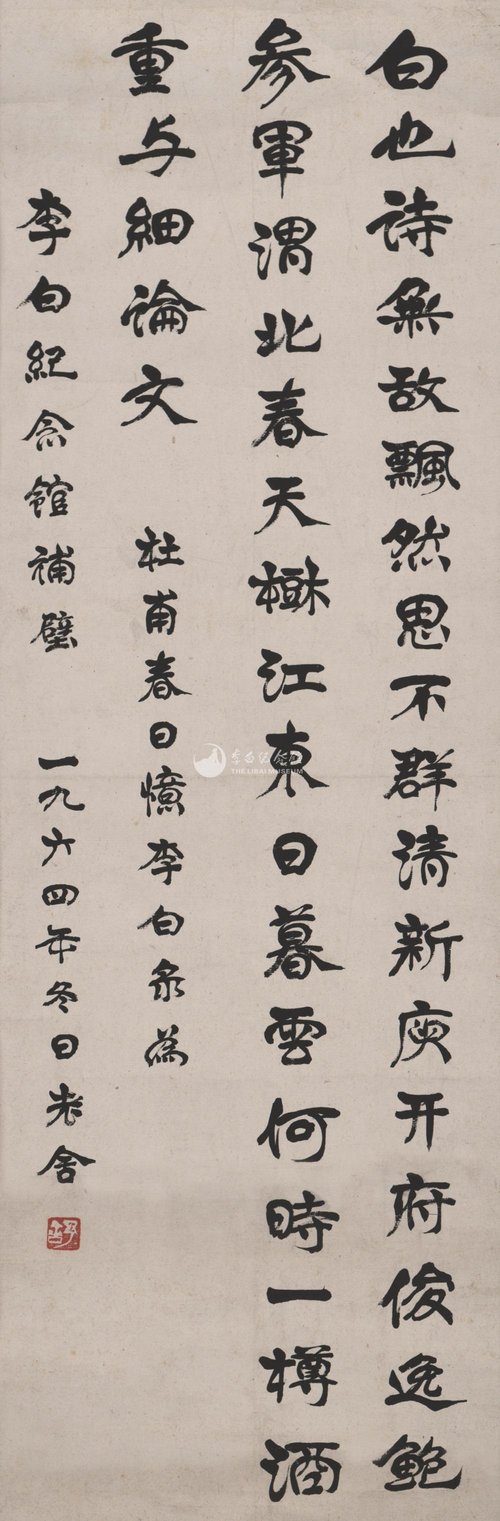 白也诗無敌飄然思不群清新庾开府俊逸鲍
参軍渭北春天樹江東日暮雲何時一樽酒
重与細論文
杜甫春日憶李白录為
李白紀念館補壁 一九六四年冬日老舍
李白纪念馆
THE LIBAI MUSEUM